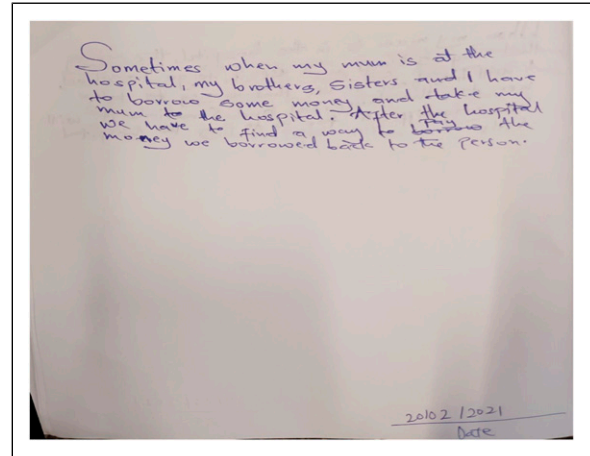 Sometimes when my mum is at the
hospital, my brothers, Sisters and I have
to borrow some money and take my
mum to the hospital. After the hospital
we have to find a way to pay the
money we borrowed back to the person.
20/02/2021
Date